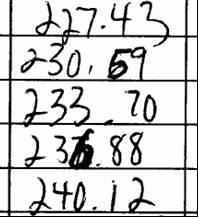 227.43
230.59
233.70
236.88
240.12